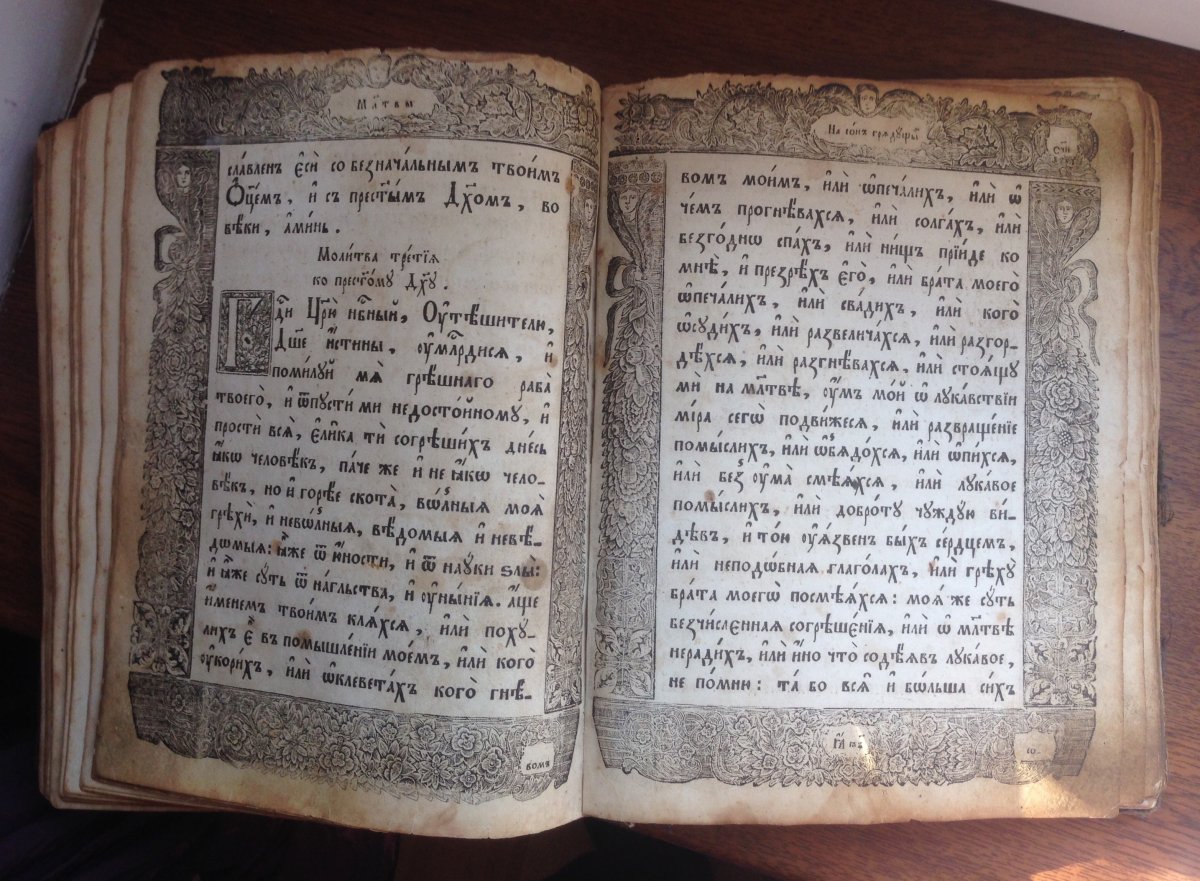 Мл҃твы
сла́вленъ є҆сѝ со безнача́льнымъ твои́мъ
Ѻ҆ц҃е́мъ , и҆ съ прест҃ы́мъ Дх҃омъ , во
вѣ́ки , а҆ми́нь .
Моли́тва тре́тїѧ
ко прест҃о́му Дх҃у .
Гдⷭ҇и Цр҃ю̀ нбⷭ҇ный , Оу҆тѣ́шителю ,
Дш҃е и҆́стины , ᲂу҆млⷭ҇рдисѧ , и҆
поми́лꙋй мѧ̀ грѣ́шнаго раба
твоего̀ , и҆ ѿпꙋсти́ ми недосто́йномꙋ , и҆
простѝ всѧ̀ , є҆ли́ка тѝ согрѣши́хъ дне́сь
ꙗ҆́кѡ человѣ́къ , па́че же и҆ не ꙗ҆́кѡ чело-
вѣ́къ , но и҆ го́рѣе скота̀ , вѡ́льныѧ моѧ̀
грѣхѝ , и҆ невѡ́льныѧ , вѣ́дѡмыѧ и҆ невѣ́-
дѡмыѧ : ꙗ҆̀же ѿ ю҆́ности , и҆ ѿ наꙋ́ки ѕлы̀ :
и҆ ꙗ҆̀же сꙋ́ть ѿ на́гльства , и҆ ᲂу҆ны́нїѧ . а҆́ще
и҆́менемъ твои́мъ клѧ́хсѧ , и҆лѝ похꙋ́-
лихъ є҆̀ въ помышле́нїи мое́мъ , и҆лѝ кого̀
ᲂу҆кори́хъ , и҆лѝ ѡ҆клевета́хъ кого̀ гнѣ́-
вомъ
На со́нъ грѧдꙋ́щымъ
вомъ мои́мъ , и҆лѝ ѡ҆печа́лихъ , и҆лѝ ѡ҆
че́мъ прогнѣ́вахсѧ , и҆лѝ солга́хъ , и҆лѝ
безго́днѡ спа́хъ , и҆лѝ ни́щъ прїи́де ко
мнѣ̀ , и҆ презрѣ́хъ є҆го̀ , и҆лѝ бра́та моего̀
ѡ҆печа́лихъ , и҆лѝ сва́дихъ , и҆лѝ кого̀
ѡ҆сꙋди́хъ , и҆лѝ развелича́хсѧ , и҆лѝ разгор-
дѣ́хсѧ , и҆лѝ разгнѣ́вахсѧ , и҆лѝ стоѧ́щꙋ
мѝ на мл҃твѣ , ᲂу҆́мъ мо́й ѡ҆ лꙋка́вствїи
мі́ра сегѡ̀ подви́жесѧ , и҆лѝ развраще́нїе
помы́слихъ , и҆лѝ ѡ҆б̾ѧдо́хсѧ , и҆лѝ ѡ҆пи́хсѧ ,
и҆лѝ без̾ ᲂу҆ма̀ смѣѧ́хсѧ , и҆лѝ лꙋка́вое
помы́слихъ , и҆лѝ добро́тꙋ чꙋждꙋ́ю ви́-
дѣвъ , и҆ то́ю ᲂу҆ѧ́звенъ бы́хъ се́рдцемъ ,
и҆лѝ неподѡ́бнаѧ глаго́лахъ , и҆лѝ грѣхꙋ̀
бра́та моегѡ̀ посмѣѧ́хсѧ : моѧ́ же сꙋ́ть
безчи́слєннаѧ согрѣшє́нїѧ , и҆лѝ ѡ҆ мл҃твѣ
неради́хъ , и҆лѝ и҆́но что̀ содѣ́ѧвъ лꙋка́вое ,
не по́мню : та́ бо всѧ̀ и҆ бѡ́льша си́хъ